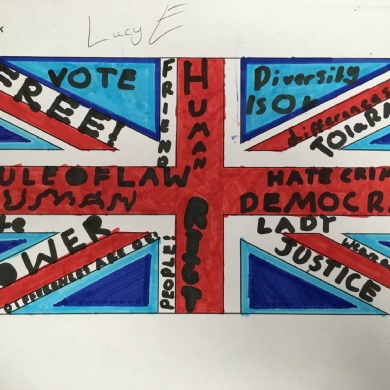 Lucy E
VOTE
FREE!
FRIEND
HUMAN
RIGT
Diversity
IS Ok
differences
TOlaRA
RULEOFLAW
HUMAN
HATE CRIM
DEMOCRA
POWER
DIFFERENCES ARE OK!
PEOPLE!
LADY
JUSTICE